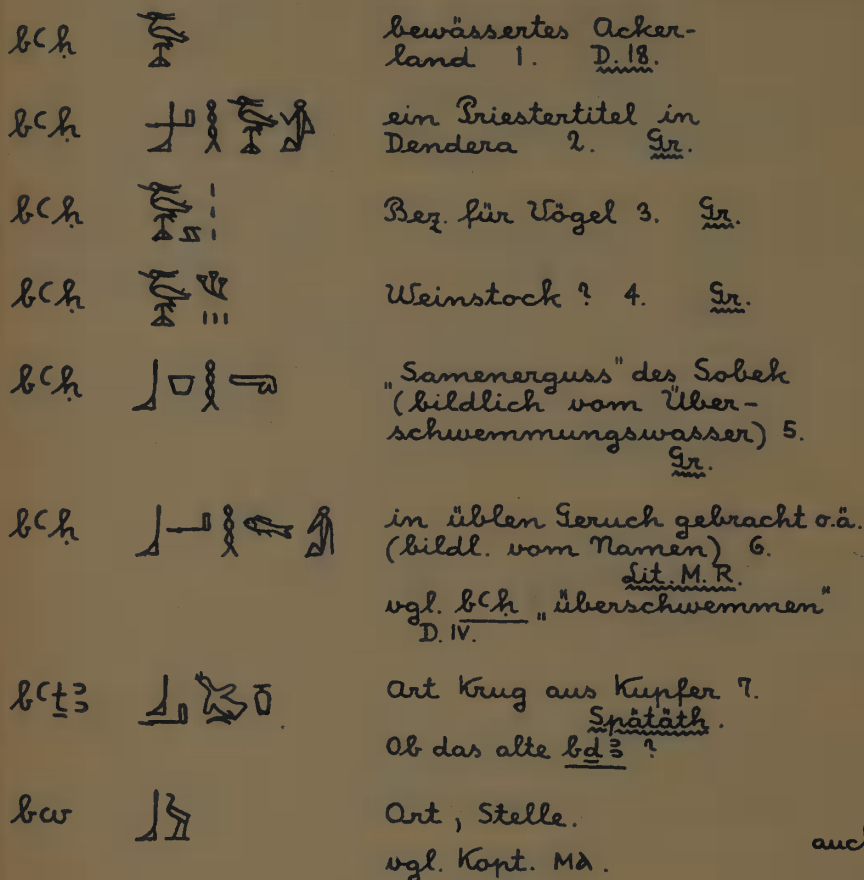 bꜥḥ bewässertes Acker-
land 1. D. 18.
bꜥḥ ein Priestertitel in
Dendera 2. Gr.
bꜥḥ Bez. für Vögel 3. Gr.
bꜥḥ Weinstock ? 4. Gr.
bꜥḥ „Samenerguss" des Sobek
(bildlich vom Über-
schwemmungswasser) 5.
Gr.
bꜥḥ in üblen Geruch gebracht o.ä.
(bildl. vom Namen) 6.
Lit. M. R.
vgl. bꜥḥ „überschwemmen"
D. IV.
bꜥṯꜣ Art Krug aus Kupfer 7.
Spätäth.
Ob das alte bḏꜣ ?
bw Ort, Stelle.
auch
vgl. Kopt. ⲙⲁ.